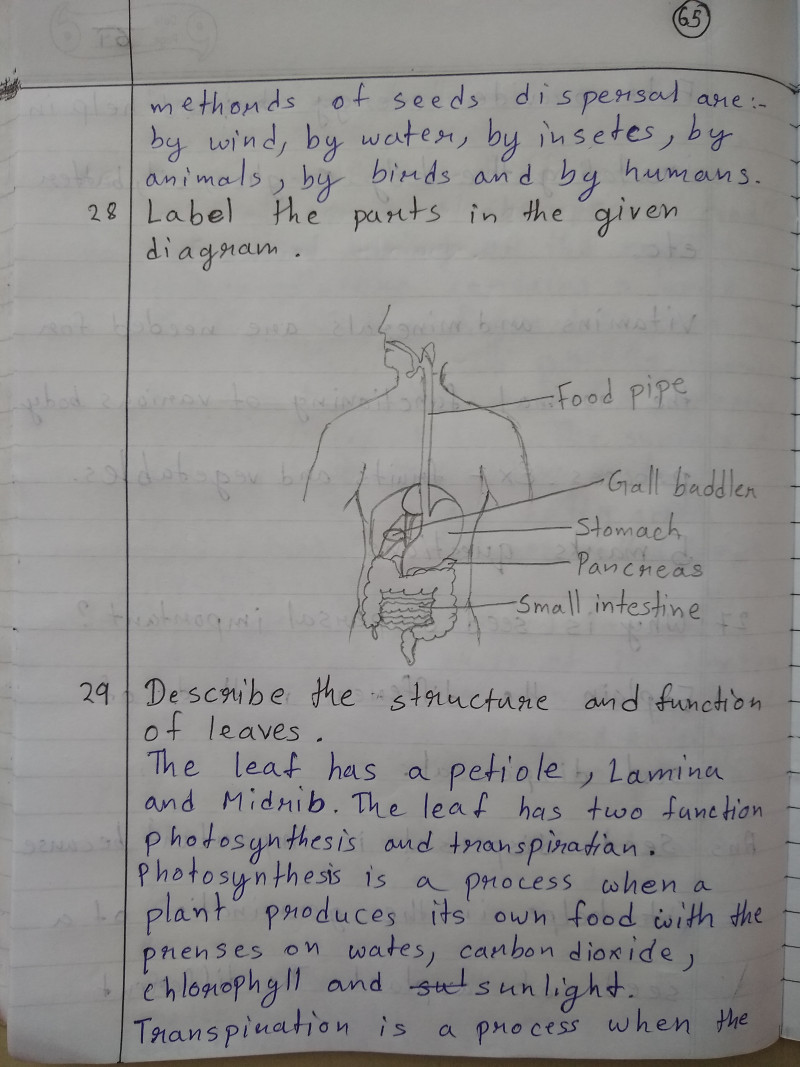 65
methonds of seeds dispersal are:-
by wind, by water, by insetes, by
animals, by birds and by humans.
28 Label the parts in the given
diagram.
Food pipe
Gall baddler
Stomach
Pancreas
Small intestine
29 Describe the structure and function
of leaves.
The leaf has a petiole, Lamina
and Midrib. The leaf has two function
photosynthesis and transpiration.
Photosynthesis is a process when a
plant produces its own food with the
prenses on wates, carbon dioxide,
chlorophyll and sut sunlight.
Transpiration is a process when the